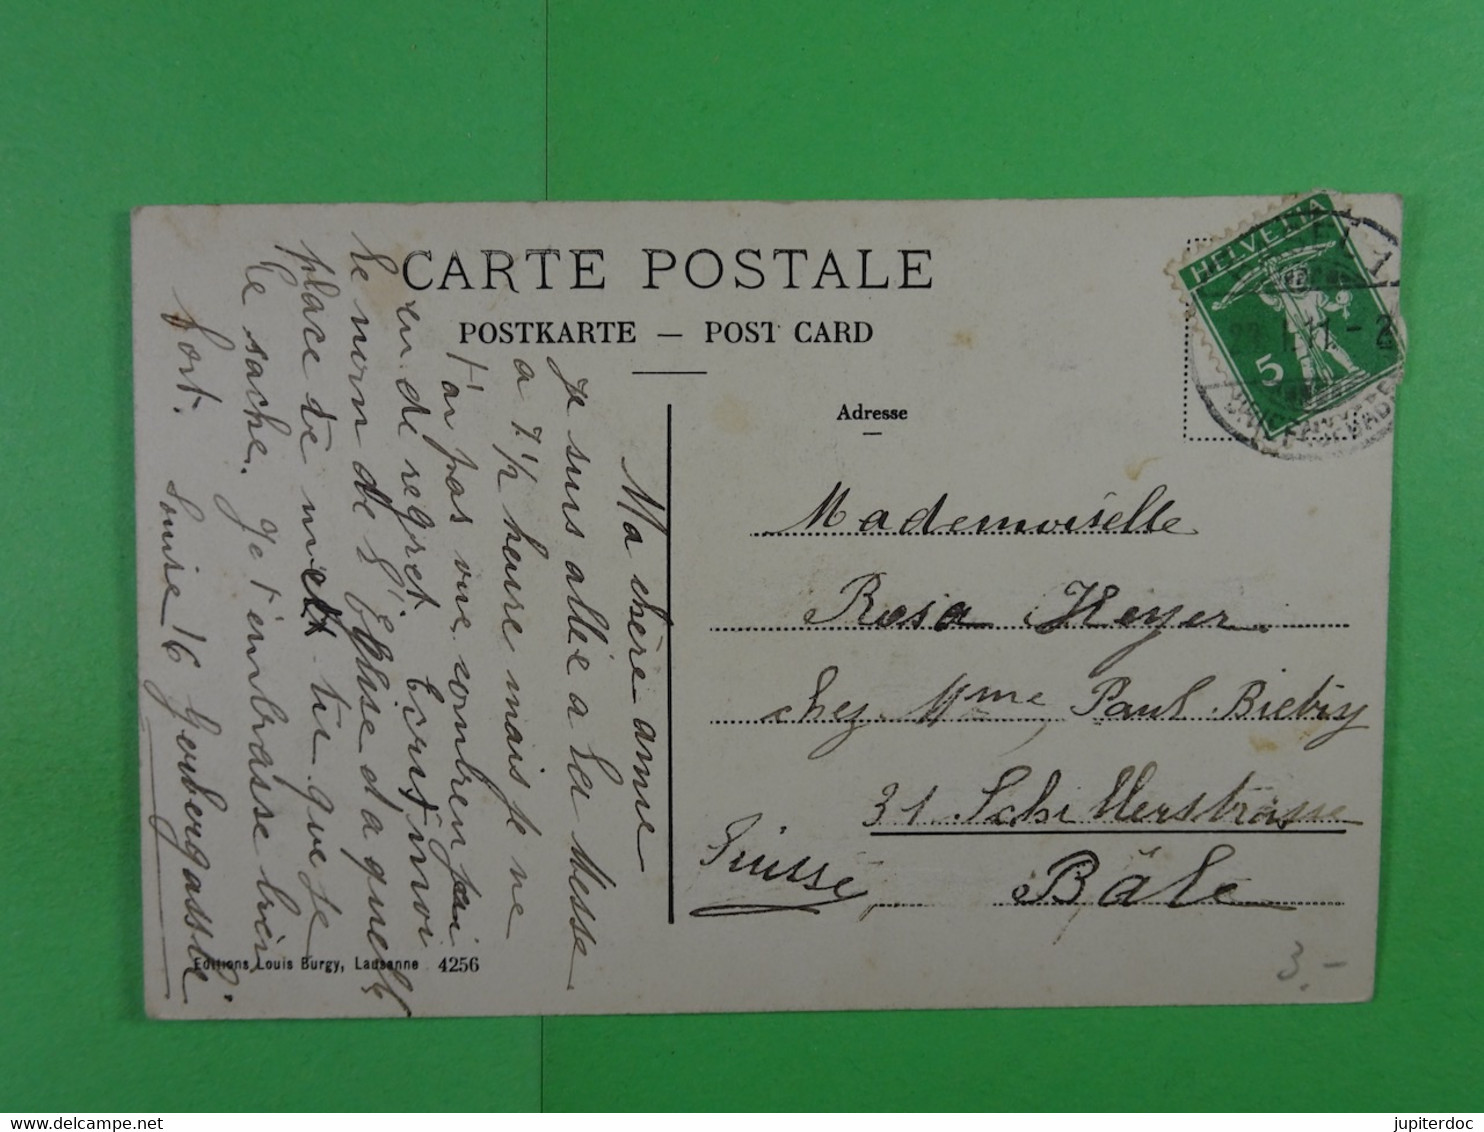 CARTE POSTALE
POSTKARTE — POST CARD
Adresse
HELVETIA
5
Ma chère amie
Je suis allée a la Messe
a 7.1/2 heure mais je ne
t'ai pas vue, combien j'ai
eu de regret. Ecris moi
le nom de l'Eglise et a quelle
place te mett tu que je
le sache. Je t'embrasse bien
fort. Louise 16 Gerbergasse
Mademoiselle
Rosa Heyer
chez Mme Paul
31 Schillerstrasse
Bâle
Suisse
Editions Louis Burgy, Lausanne 4256
3.-
jupiterdoc
delcampe.net